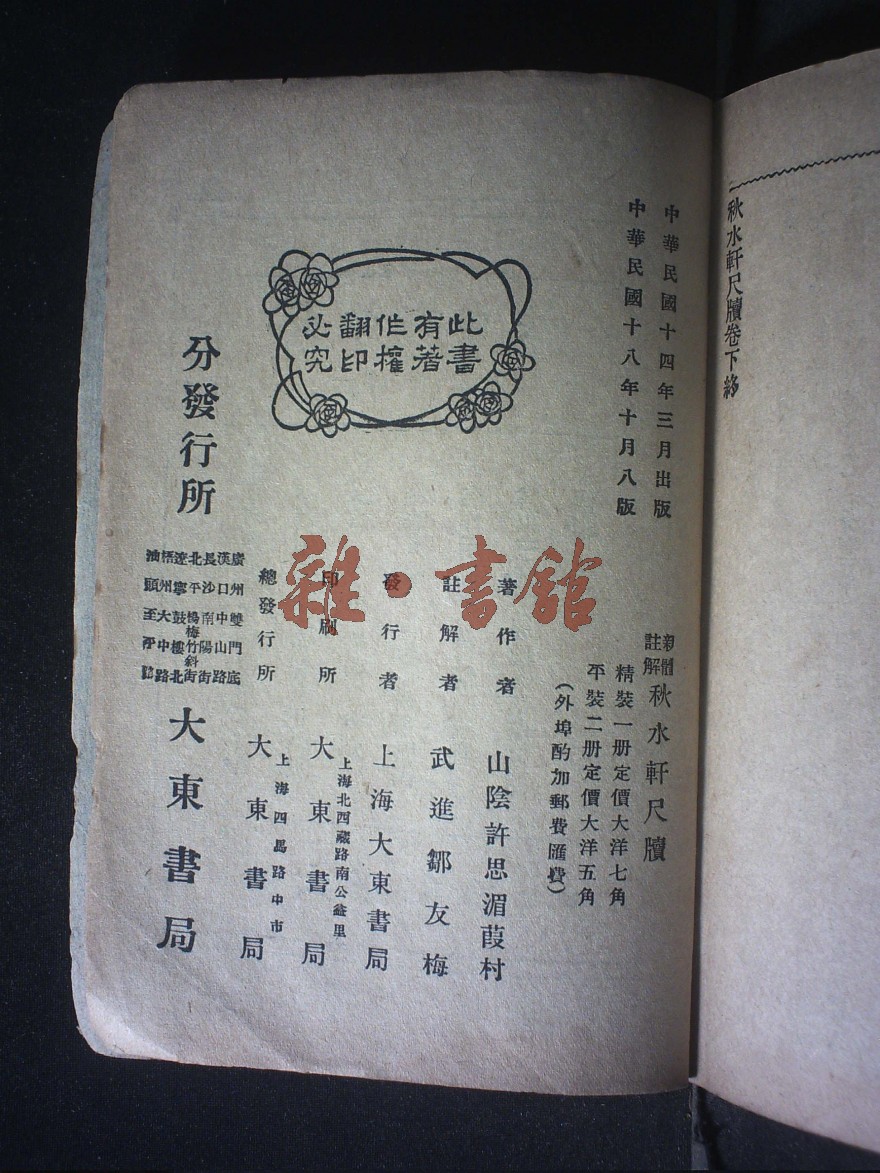 秋水軒尺牘卷下終
中華民國十四年三月出版
中華民國十八年十月八版
此書
有著
作權
翻印
必究
註解
秋水軒尺牘
精裝一册定價大洋七角
平裝二册定價大洋五角
（外埠酌加郵費匯費）
著作者 山陰許思湄葭村
註解者 武進鄒友梅
發行者 上海大東書局
印刷所 上海北西藏路南公益里 大東書局
總發行所 上海四馬路中市 大東書局
分發行所
廣州雙門底
漢口中山路
長沙南陽街
北平楊梅竹斜街
遼寧鼓樓北
梧州大中路
大東書局
雜·書館